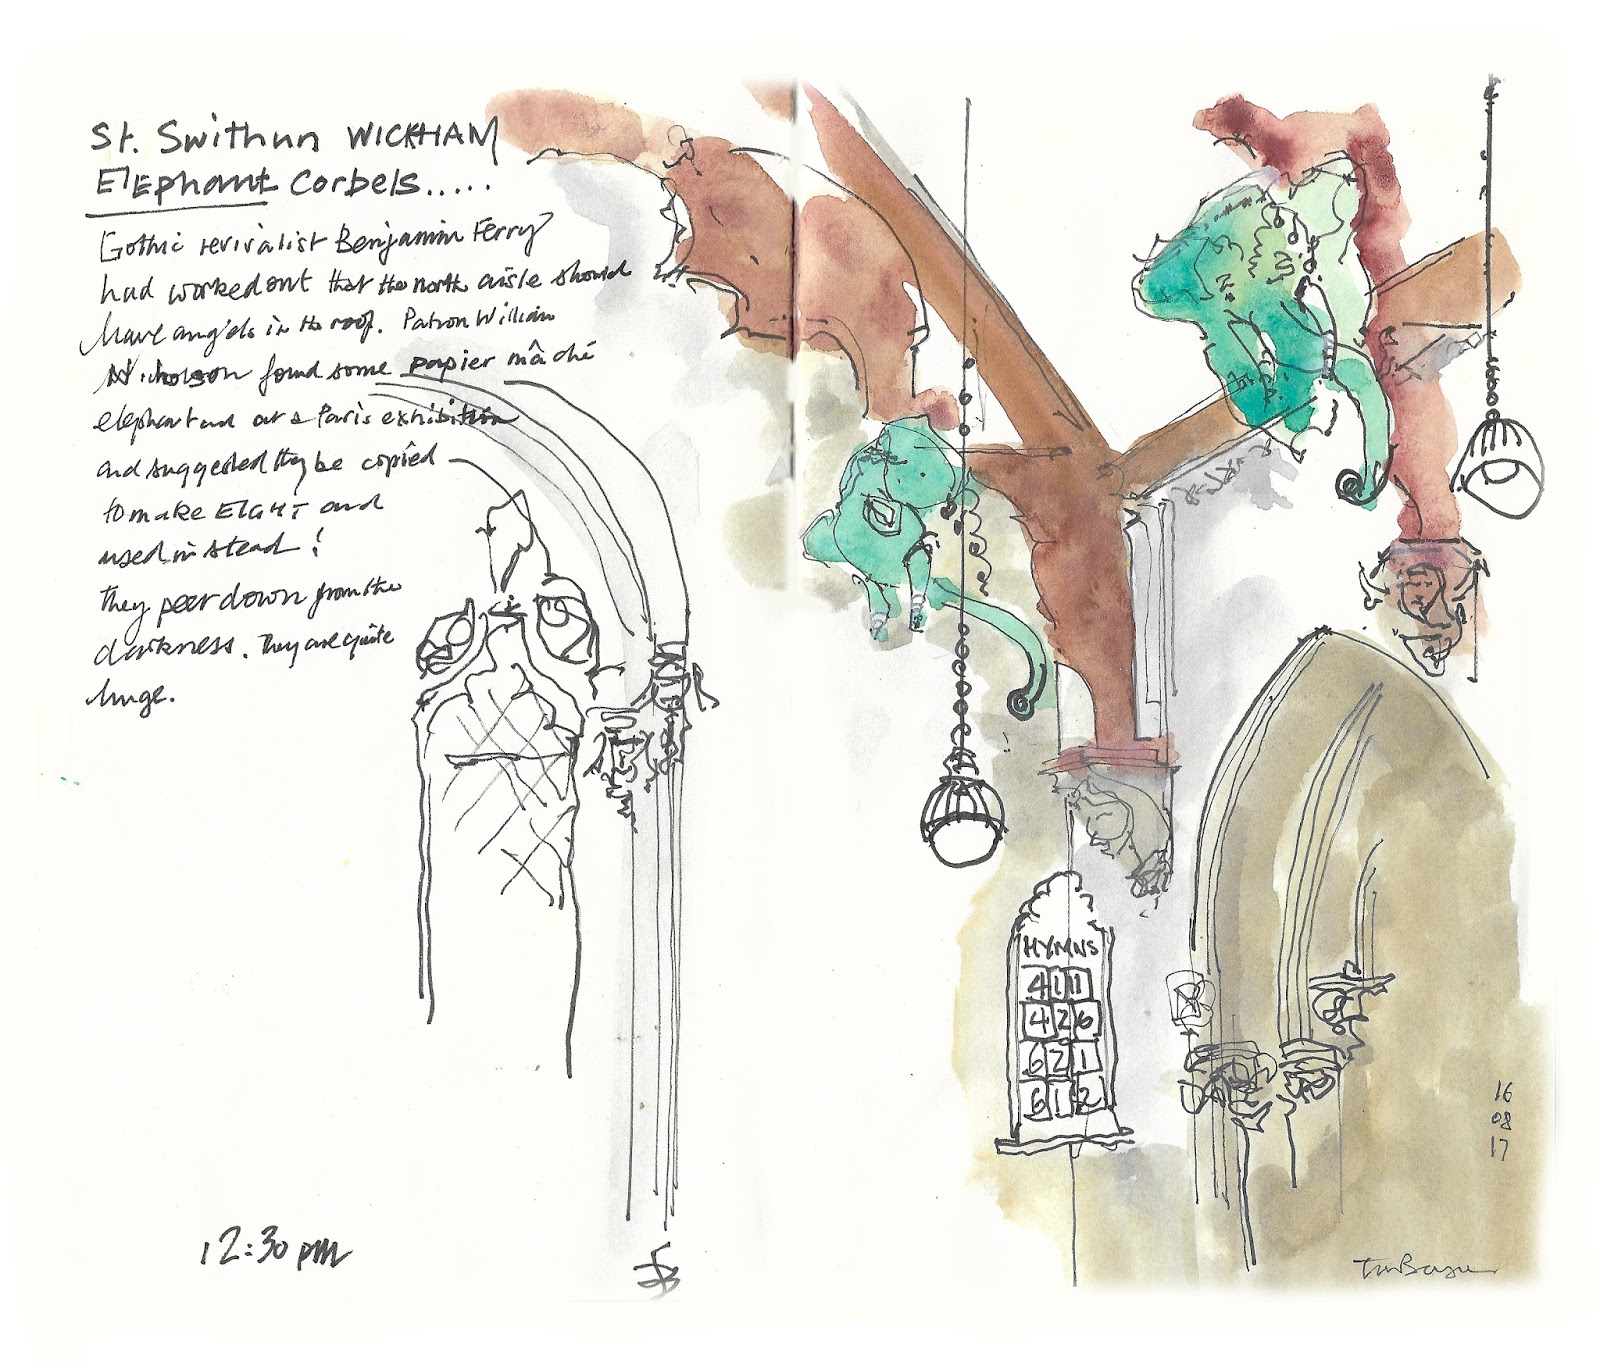 St. Swithun WICKHAM
Elephant Corbels.....
Gothic revivalist Benjamin Ferry
had worked out that the north aisle should
have angels in the roof. Patron William
Nicholson found some papier mâché
elephant at a Paris exhibition
and suggested they be copied
to make EIGHT and
used instead!
They peer down from the
darkness. They are quite
huge.
HYMNS
411
426
621
612
16
08
17
12:30 pm